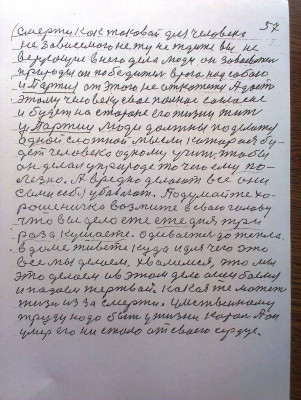 57
смерти как таковой для человека
не зависимого нету не ждите вы не
верующие в него дела люди он завоевател
природы он победител врага над собою
и Партия от этого не откажется А даст
этому человеку свое полное согласие
и будет на стороне его жизни жить
у Партии люди должны подойти
одной сложной мысли которая бу-
дет человека одному учить чтобы
он делал в природе то чего ему по-
лезно. А вредно делают все они
сами себя убивают. Подумайте хо-
рошеничко возмите в свою голову
что выделаете еште для три
раза кушаете. Одиваетес до тепла.
в доме живете куда и для чего это
все мы делаем, хвалимся, что мы
это делаем и в этом деле они болеем
и падаем жертвой. Какая же может
жизн из за смерти. Умственному
труду надо быт у жизни Карал А он
умер его ни стало от своего сердца.